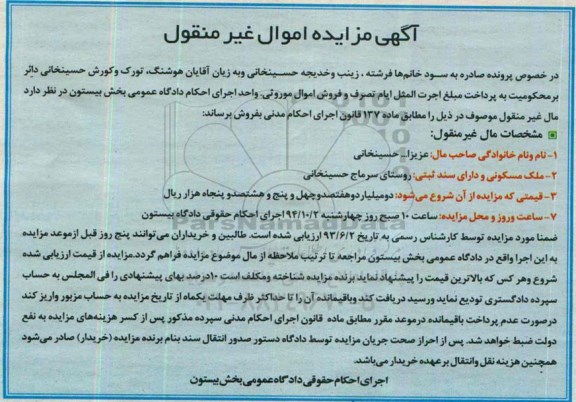 آگهی مزایده اموال غیر منقول
در خصوص پرونده صادره به سود خانم‌ها فرشته ، زینب وخدیجه حسینخانی وبه زیان آقایان هوشنگ، تورک وکورش حسینخانی دائر
برمحکومیت به پرداخت مبلغ اجرت المثل ایام تصرف و فروش اموال موروثی. واحد اجرای احکام دادگاه عمومی بخش بیستون در نظر دارد
مال غیر منقول موصوف در ذیل را مطابق ماده ۱۳۷ قانون اجرای احکام مدنی بفروش برساند:
مشخصات مال غیرمنقول:
۱- نام ونام خانوادگی صاحب مال: عزیزا... حسینخانی
۲- ملک مسکونی و دارای سند ثبتی: روستای سرماج حسینخانی
۳- قیمتی که مزایده از آن شروع می‌شود: دومیلیاردوهفتصدوچهل و پنج و هشتصدو پنجاه هزار ریال
۷- ساعت وروز و محل مزایده: ساعت ۱۰ صبح روز چهارشنبه ۹۴/۱۰/۲ اجرای احکام حقوقی دادگاه بیستون
ضمنا مورد مزایده توسط کارشناس رسمی به تاریخ ۹۳/۶/۲ ارزیابی شده است. طالبین و خریداران می‌توانند پنج روز قبل ازموعد مزایده
به این اجرا واقع در دادگاه عمومی بخش بیستون مراجعه تا ترتیب ملاحظه از مال موضوع مزایده فراهم گردد.مزایده از قیمت ارزیابی شده
شروع وهر کس که بالاترین قیمت را پیشنهاد نماید برنده مزایده شناخته ومکلف است ۱۰درصد بهای پیشنهادی را فی المجلس به حساب
سپرده دادگستری تودیع نماید ورسید دریافت کند وباقیمانده آن را تا حداکثر ظرف مهلت یکماه از تاریخ مزایده به حساب مزبور واریز کند
درصورت عدم پرداخت باقیمانده درموعد مقرر مطابق ماده قانون اجرای احکام مدنی سپرده مذکور پس از کسر هزینه‌های مزایده به نفع
دولت ضبط خواهد شد. پس از احراز صحت جریان مزایده توسط دادگاه دستور صدور انتقال سند بنام برنده مزایده (خریدار) صادر می‌شود
همچنین هزینه نقل وانتقال بر عهده خریدار می‌باشد.
اجرای احکام حقوقی دادگاه عمومی بخش بیستون